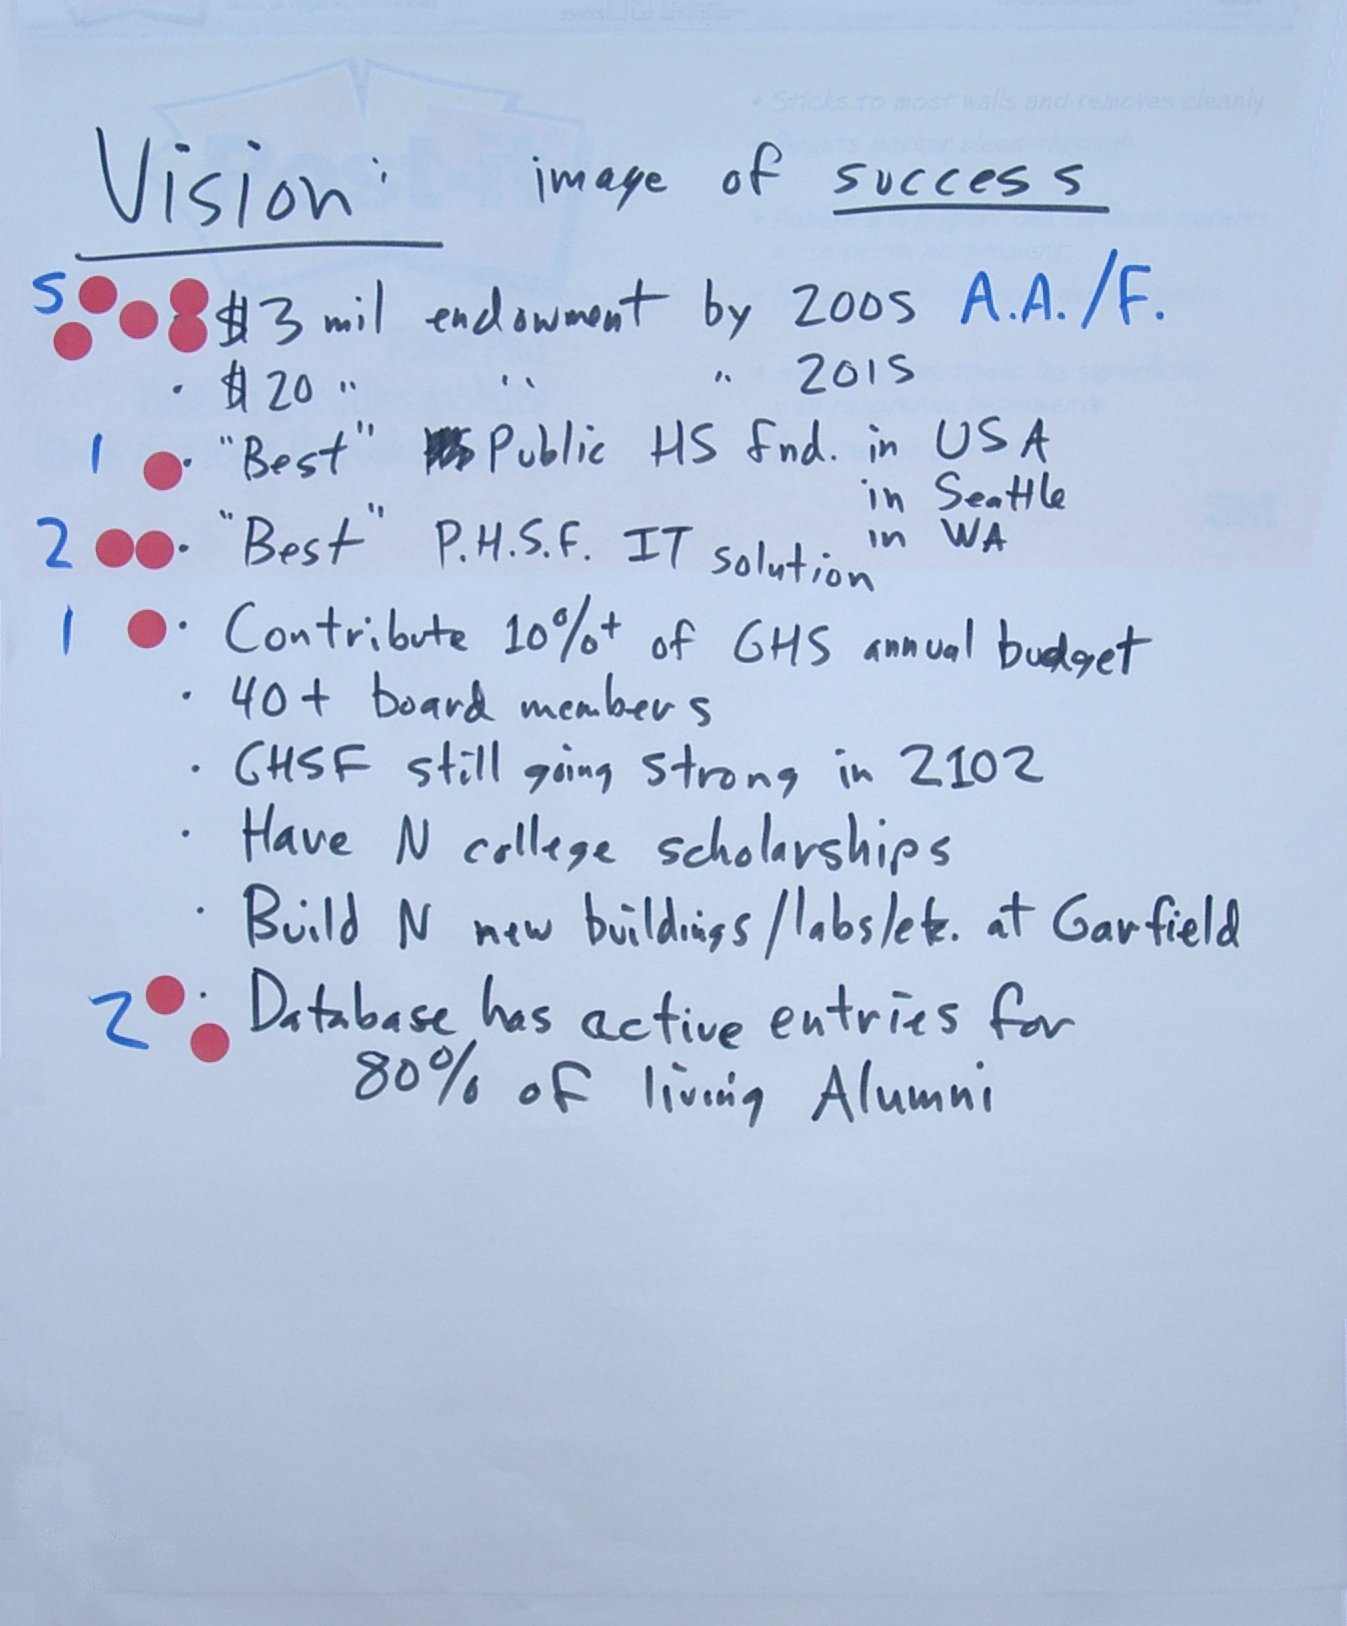 Vision: image of success
5 $3 mil endowment by 2005 A.A./F.
· $20 " " " 2015
1 · "Best" Public HS fnd. in USA
in Seattle
in WA
2 · "Best" P.H.S.F. IT solution
1 · Contribute 10%+ of GHS annual budget
· 40+ board members
· GHSF still going strong in 2102
· Have N college scholarships
· Build N new buildings/labs/etc. at Garfield
2 · Database has active entries for
80% of living Alumni
• Sticks to most walls and removes cleanly
Post-it